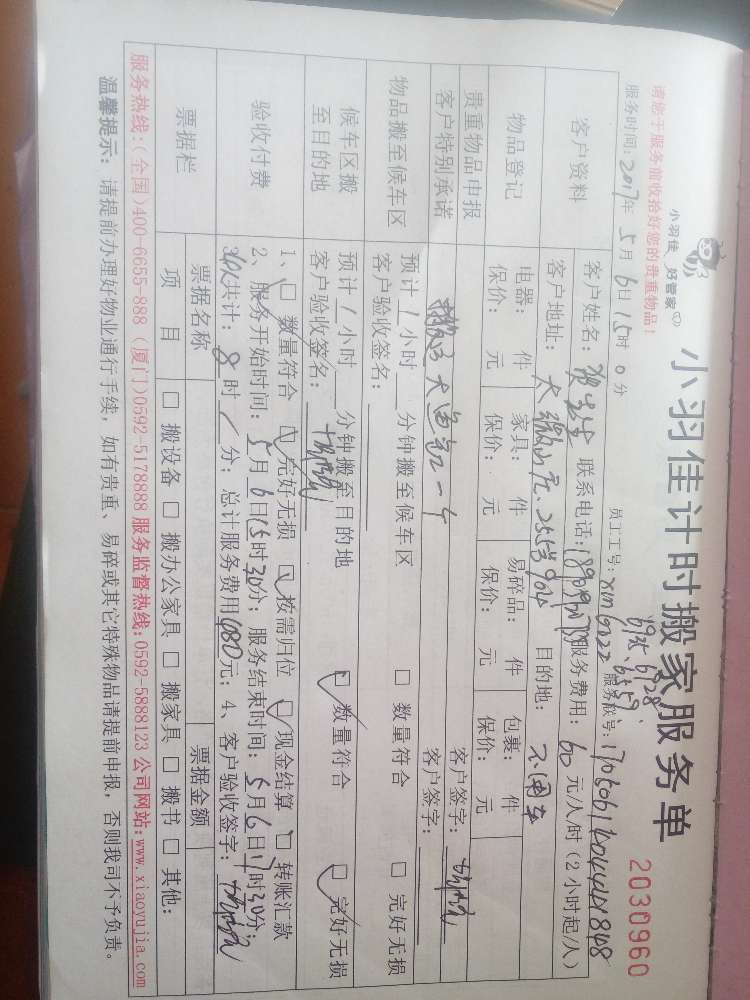 小羽佳 好管家
小羽佳计时搬家服务单
2030960
请您于服务前收拾好您的贵重物品！
员工工号：
服务时间：2017年 5月 6日 15时 0分
服务单号：
客户资料
客户姓名： 联系电话： 服务费用：60元/人/时（2小时起/人）
客户地址： 目的地：不用车
物品登记
电器： 件 家具： 件 易碎品： 件 包裹： 件
保价： 元 保价： 元 保价： 元 保价： 元
贵重物品申报 客户签字：
客户特别承诺 客户签字：
物品搬至候车区
预计1小时 分钟搬至候车区 □ 数量符合 □ 完好无损
客户验收签名：
候车区搬至目的地
预计1小时 分钟搬至目的地 □ 数量符合 □ 完好无损
客户验收签名：
验收付费
1、□ 数量符合 □ 完好无损 □ 按需归位 □ 现金结算 □ 转账汇款
2、服务开始时间：5月6日15时30分；服务结束时间：5月6日 时30分；
3、共计：8时 分；总计服务费用480元；4、客户验收签字：
票据栏
票据名称 票据金额
项目 □ 搬设备 □ 搬办公家具 □ 搬家具 □ 搬书 □ 其他：
服务热线：（全国）400-6655-888（厦门）0592-5178888 服务监督热线：0592-5888123 公司网站：www.xiaoyujia.com
温馨提示：请提前办理好物业通行手续，如有贵重、易碎或其它特殊物品请提前申报，否则我司不予负责。